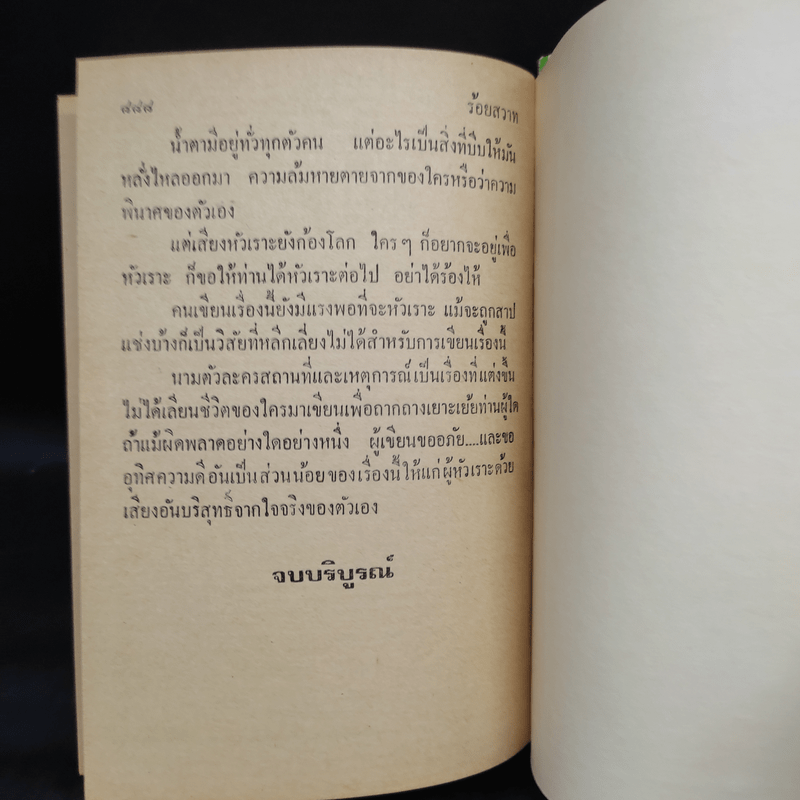 ๘๘๘ ร้อยสวาท
น้ำตามีอยู่ทั่วทุกตัวคน แต่อะไรเป็นสิ่งที่บีบให้มัน
หลั่งไหลออกมา ความล้มหายตายจากของใครหรือว่าความ
พินาศของตัวเอง
แต่เสียงหัวเราะยังก้องโลก ใครๆ ก็อยากจะอยู่เพื่อ
หัวเราะ ก็ขอให้ท่านได้หัวเราะต่อไป อย่าได้ร้องไห้
คนเขียนเรื่องนี้ยังมีแรงพอที่จะหัวเราะ แม้จะถูกสาป
แช่งบ้างก็เป็นวิสัยที่หลีกเลี่ยงไม่ได้สำหรับการเขียนเรื่องนี้
นามตัวละครสถานที่และเหตุการณ์เป็นเรื่องที่แต่งขึ้น
ไม่ได้เลียนชีวิตของใครมาเขียนเพื่อถากถางเยาะเย้ยท่านผู้ใด
ถ้าแม้ผิดพลาดอย่างใดอย่างหนึ่ง ผู้เขียนขออภัย....และขอ
อุทิศความดีอันเป็นส่วนน้อยของเรื่องนี้ให้แก่ผู้หัวเราะด้วย
เสียงอันบริสุทธิ์จากใจจริงของตัวเอง
จบบริบูรณ์